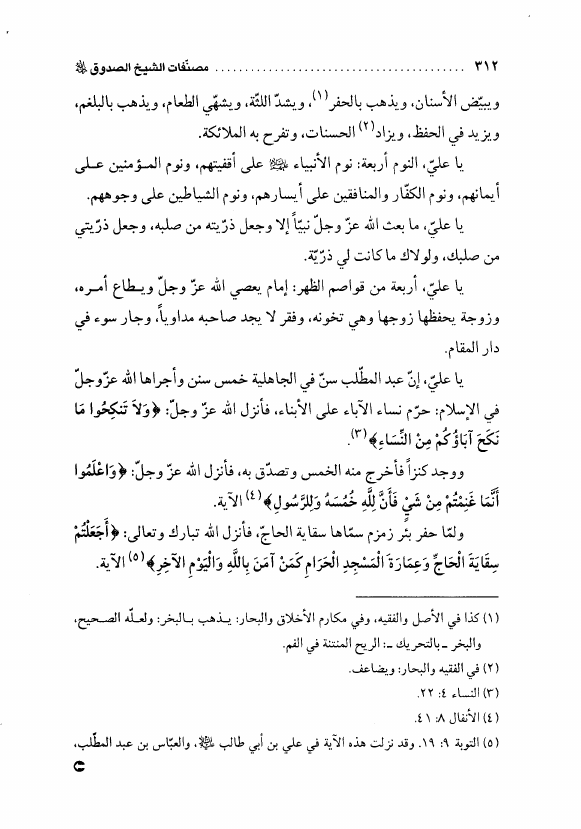 ٣١٢ ........................................ مصنّفات الشيخ الصدوق ﵀
ويبيّض الأسنان، ويذهب بالحفر(١)، ويشدّ اللثّة، ويشهّي الطعام، ويذهب بالبلغم،
ويزيد في الحفظ، ويزاد(٢) الحسنات، وتفرح به الملائكة.
يا عليّ، النوم أربعة: نوم الأنبياء ﵈ على أقفيتهم، ونوم المؤمنين على
أيمانهم، ونوم الكفّار والمنافقين على أيسارهم، ونوم الشياطين على وجوههم.
يا عليّ، ما بعث الله عزّ وجلّ نبيّاً إلا وجعل ذرّيته من صلبه، وجعل ذرّيتي
من صلبك، ولولاك ما كانت لي ذرّيّة.
يا عليّ، أربعة من قواصم الظهر: إمام يعصي الله عزّ وجلّ ويطاع أمره،
وزوجة يحفظها زوجها وهي تخونه، وفقر لا يجد صاحبه مداوياً، وجار سوء في
دار المقام.
يا عليّ، إنّ عبد المطّلب سنّ في الجاهلية خمس سنن وأجراها الله عزّ وجلّ
في الإسلام: حرّم نساء الآباء على الأبناء، فأنزل الله عزّ وجلّ: ﴿وَلاَ تَنكِحُوا مَا
نَكَحَ آبَاؤُكُمْ مِنْ النِّسَاءِ﴾(٣).
ووجد كنزاً فأخرج منه الخمس وتصدّق به، فأنزل الله عزّ وجلّ: ﴿وَاعْلَمُوا
أَنَّمَا غَنِمْتُمْ مِنْ شَيْءٍ فَأَنَّ لِلَّهِ خُمُسَهُ وَلِلرَّسُولِ﴾(٤) الآية.
ولمّا حفر بئر زمزم سمّاها سقاية الحاجّ، فأنزل الله تبارك وتعالى: ﴿أَجَعَلْتُمْ
سِقَايَةَ الْحَاجِّ وَعِمَارَةَ الْمَسْجِدِ الْحَرَامِ كَمَنْ آمَنَ بِاللَّهِ وَالْيَوْمِ الآخِرِ﴾(٥) الآية.
(١) كذا في الأصل والفقيه، وفي مكارم الأخلاق والبحار: يذهب بالبخر: ولعلّه الصحيح،
والبخر ـ بالتحريك ـ: الريح المنتنة في الفم.
(٢) في الفقيه والبحار: ويضاعف.
(٣) النساء ٤: ٢٢.
(٤) الأنفال ٨: ٤١.
(٥) التوبة ٩: ١٩. وقد نزلت هذه الآية في علي بن أبي طالب ﵇، والعبّاس بن عبد المطّلب،